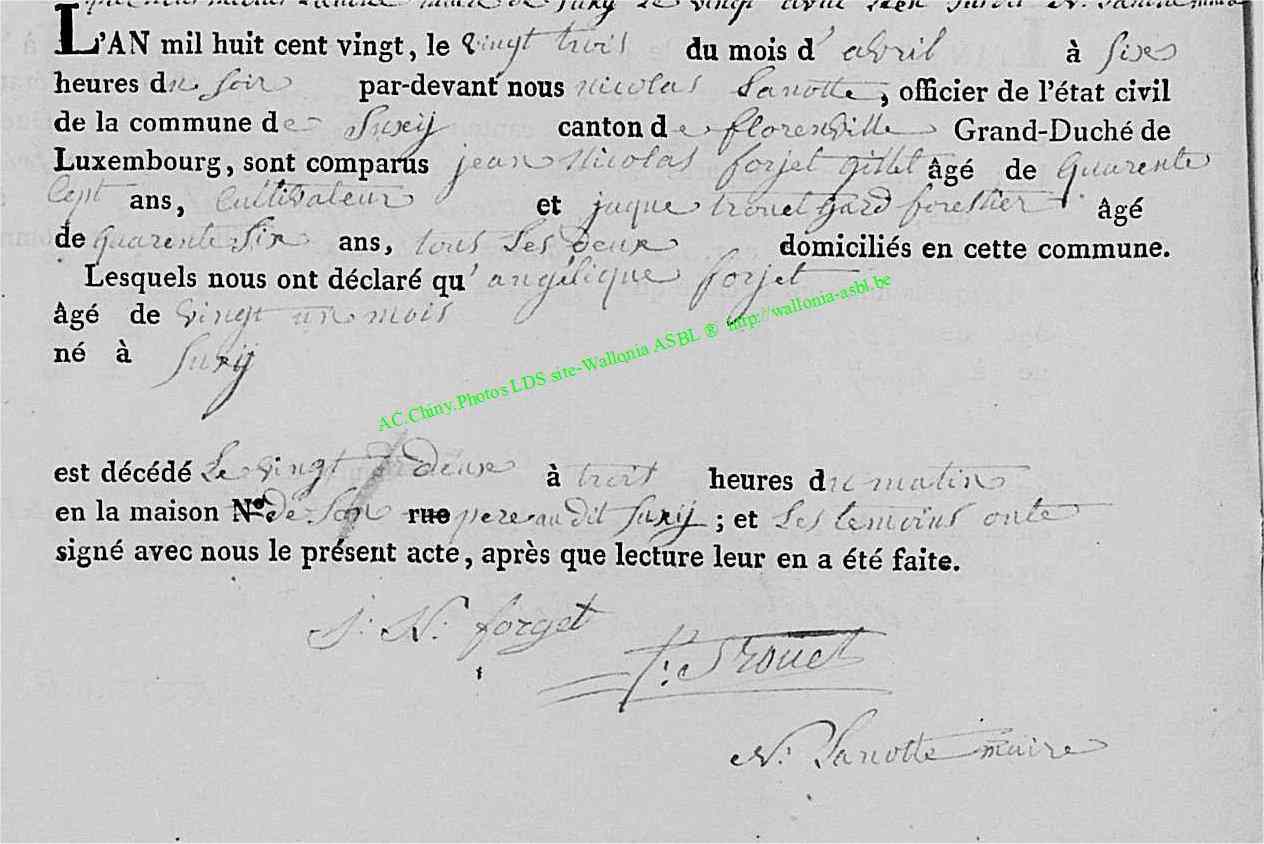 maire de Suxy le vingt avril
L'AN mil huit cent vingt, le vingt trois du mois d'avril à six
heures du soir par-devant nous nicolas Lanotte, officier de l'état civil
de la commune de Suxÿ canton de florenville Grand-Duché de
Luxembourg, sont comparus jean Nicolas forjet gillet âgé de quarente
Cept ans, Cultivateur et jaque trouet gard forestier âgé
de quarente Six ans, tous Les deux domiciliés en cette commune.
Lesquels nous ont déclaré qu'angélique forjet
âgé de vingt un mois
né à Suxÿ
AC.Chiny.Photos LDS site-Wallonia ASBL ® http://wallonia-asbl.be
est décédé Le vingt deux à trois heures du matin
en la maison N.º de Son rue pere au dit Suxÿ; et Les temoins onte
signé avec nous le présent acte, après que lecture leur en a été faite.
J: N: forget
J: Trouet
N: Lanotte maire